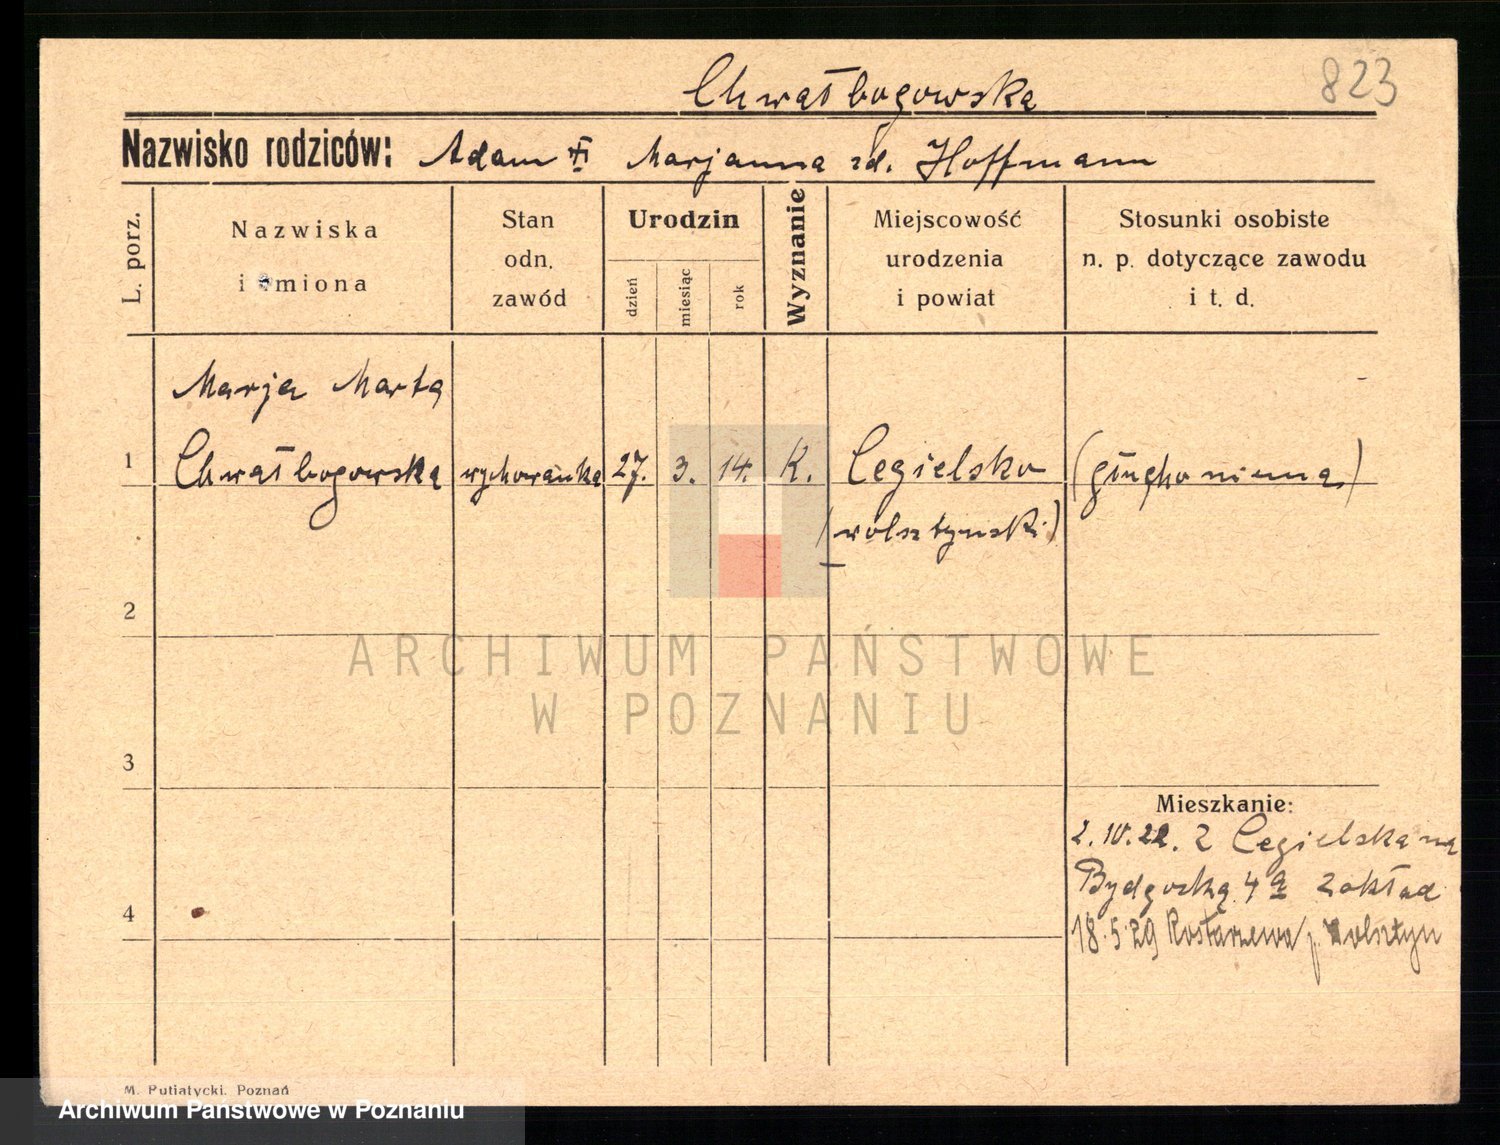 Chwałbogowska
823
Nazwisko rodziców: Adam † Marjanna zd. Hoffmann
L. porz.
Nazwiska
i imiona
Stan
odn.
zawód
Urodzin
dzień
miesiąc
rok
Wyznanie
Miejscowość
urodzenia
i powiat
Stosunki osobiste
n. p. dotyczące zawodu
i t. d.
Marja Marta
1 Chwałbogowska wychowanka 27. 3. 14. K. Cegielsko (głuchoniema)
(wolsztyński)
2
ARCHIWUM PAŃSTWOWE
W POZNANIU
3
Mieszkanie:
2.10.22. z Cegielska na
Bydgoską 4a Zakład
4
18.5.29 Rostarzewa p. Wolsztyn
M. Putiatycki. Poznań
Archiwum Państwowe w Poznaniu